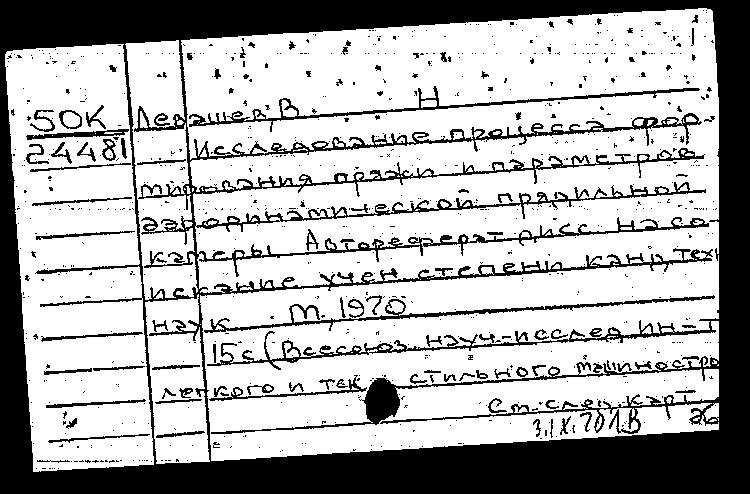 50К Левашев, В. Н
24481 Исследование процесса фор-
мирования пряжи и параметров
аэродинамической прядильной
камеры. Автореферат дисс. на со-
искание учен. степени канд. техн
наук. М., 1970.
15с (Всесоюз. науч-исслед. ин-т
легкого и текстильного машиностро
См. след. карт.
3.IX.70